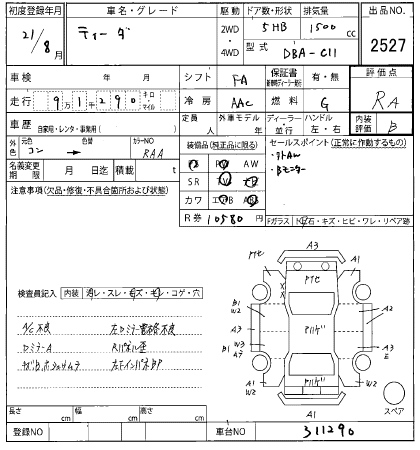 初度登録年月 車名・グレード 駆動 ドア数・形状 排気量 出品NO.
21/8月 ティーダ 2WD・4WD 5HB 1500cc
型式 DBA-C11 2527
車検 年 月 シフト FA 保証書 有・無 評価点
走行 9万1千290 キロ・マイル 冷房 AAC 燃料 G RA
車歴 自家用・レンタ・事業用( ) 定員 人 外車モデル 年 ディーラー・並行 ハンドル 左・右 内装評価 B
外色 元色 コン 色替 カラーNO RAA 装備品(純正品に限る) セールスポイント(正常に作動するもの)
・ナトAW
・Bモニター
名義変更期限 月 日迄 積載 t
AW
SR
カワ
注意事項(欠品・修復・不具合箇所および状態) R券 10580円 Fガラス
石・キズ・ヒビ・ワレ・リペア跡
検査員記入 内装 ・スレ・キズ・ ・コゲ・穴
A/C不良 左Dミラー電格不良
DミラーA Rパネル歪
左FインパネBP
A3
アトセ
アトセ
A1
A1
B1
W2
A2
A3
アリゲ
A3
B1
W3
A7
A3
E
A1
W2
アリゲ
W2
A1
スペア
長さ cm 幅 cm 高さ cm
登録NO 車台NO 311290